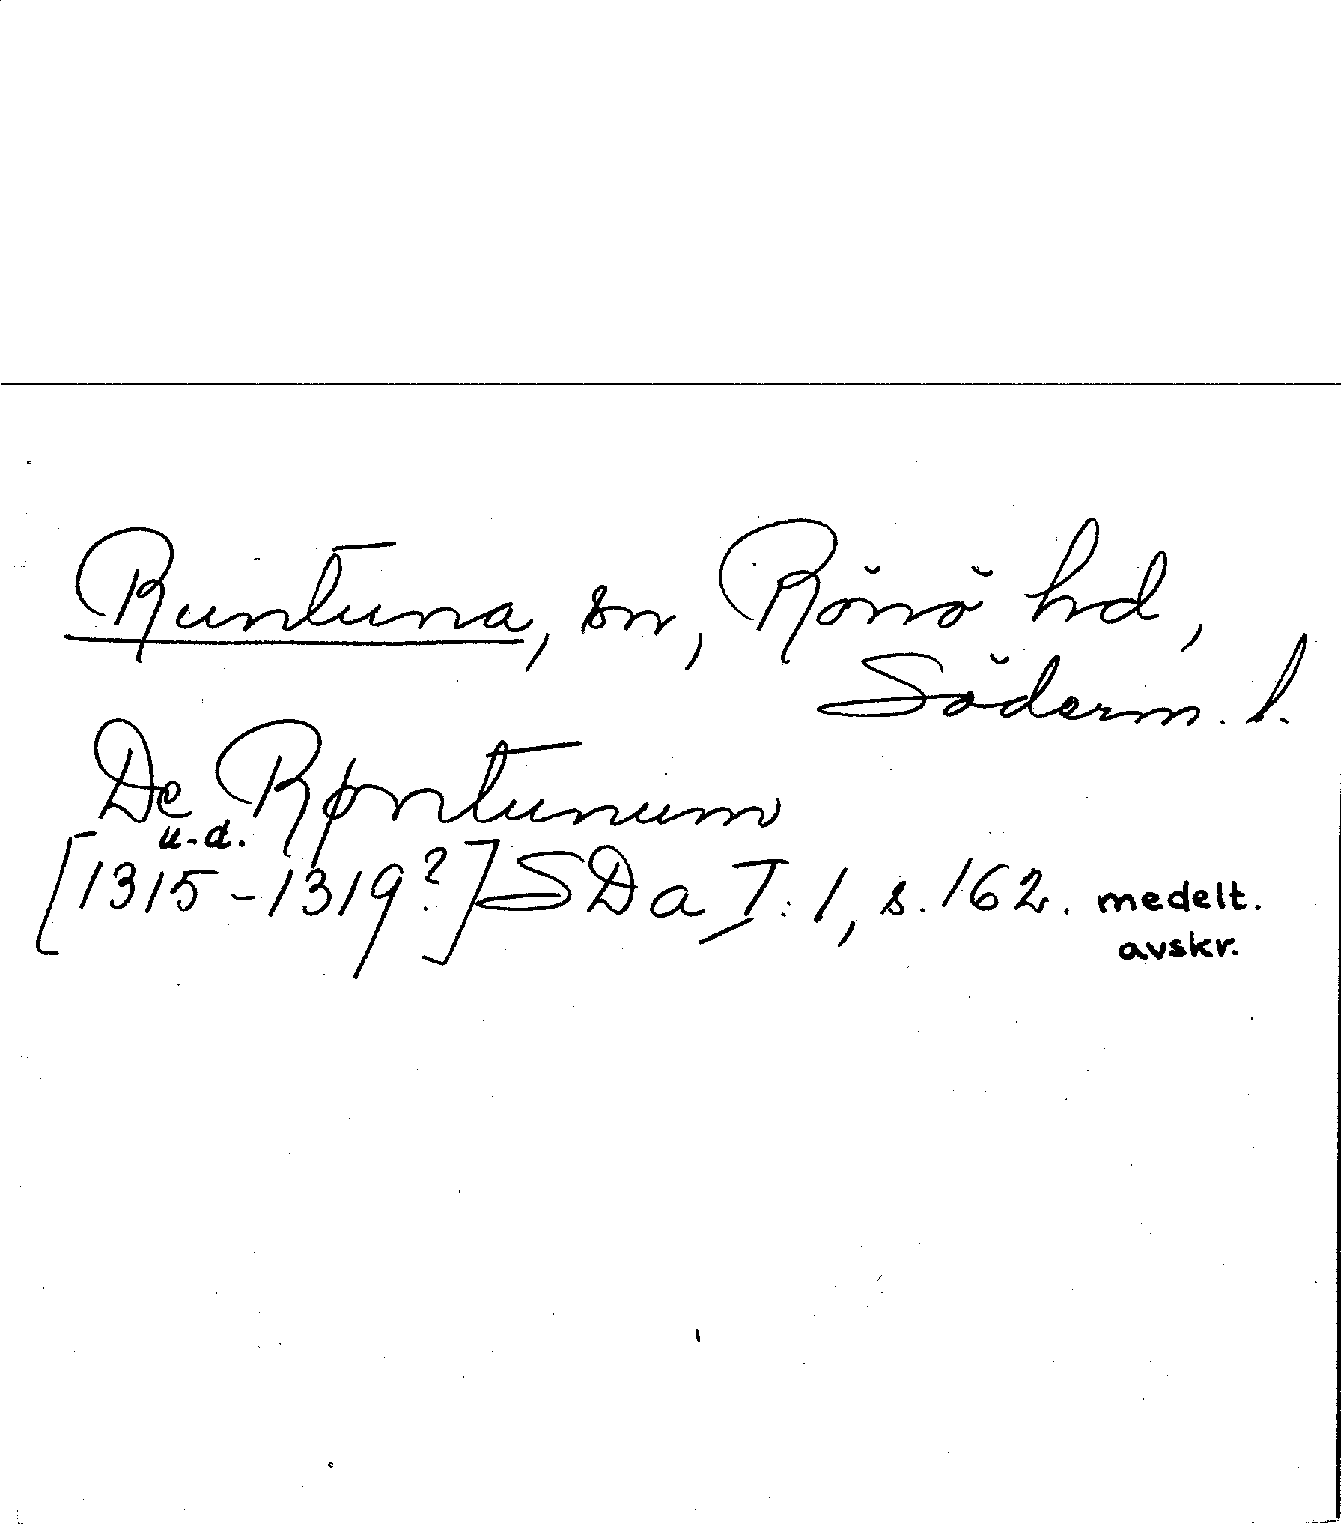 Runtuna, sn, Rönö hd,
Söderm. l.
De Røntunum
u.d.
[1315-1319?] SDa I:1, s. 162. medelt.
avskr.